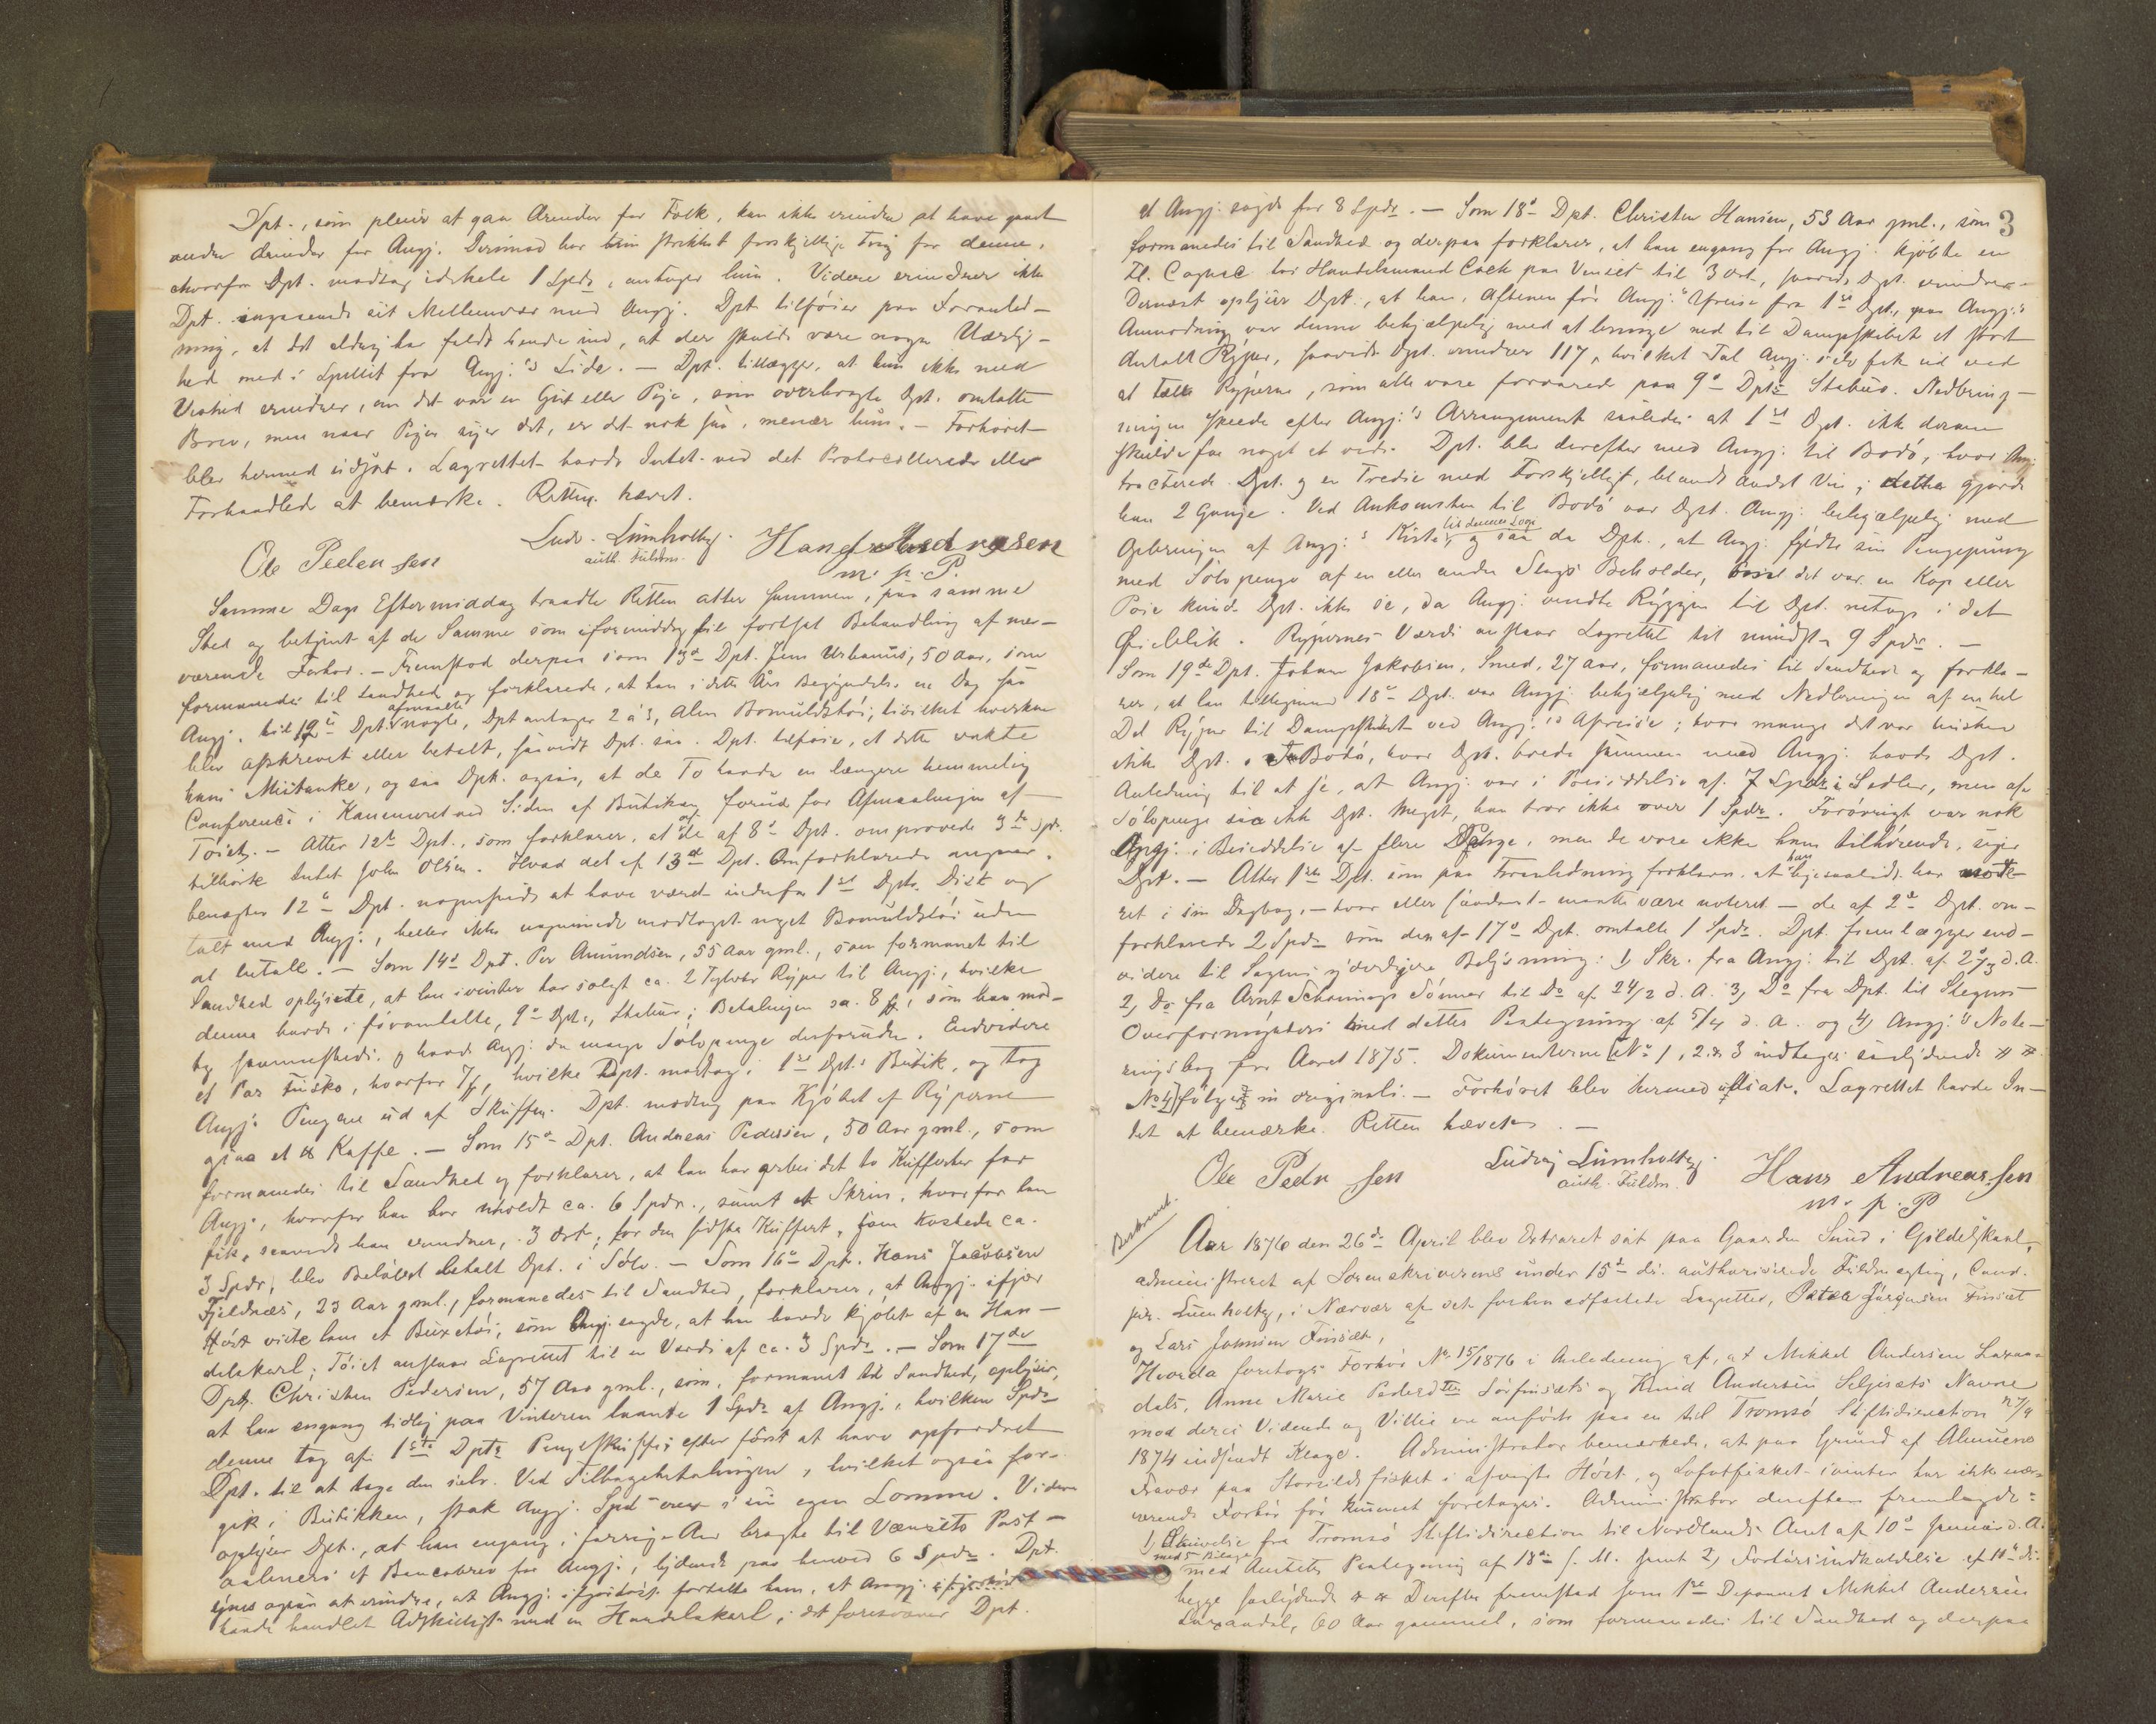 Dpt., som pleier at gaa Ærinder for Folk, kan ikke erindre at have gaaet
andre Ærinder for Angj. Derimod har hun strikket forskjellige Ting for denne,
hvorfor Dpt. modtog idethele 1 Spdr, antager hun. Videre erindrer ikke
Dpt. angaaende sit Mellemvær med Angj. Dpt. tilføier paa Foranled-
ning, at det aldrig har faldt hende ind, at der skulde være nogen Uærlig-
hed med i Spillet fra Angj.'s Side. — Dpt. tillægger, at hun ikke med
Vished erindrer, om det var en Gut eller Pige, som overbragte Dpt. omtalte
Brev, men naar Pigen siger det, er det nok saa, mener hun. — Forhøret
blev hermed sluttet. Lagrettet havde Intet ved det Protocollerede eller
Forhandlede at bemærke. Retten hævet.
Ole Pedersen Ludv. Lumholtz. Hans Andreasen
auth. Fuldm. m. p. P.
Samme Dags Eftermiddag traadte Retten atter sammen, paa samme
Sted og betjent af de Samme som iformiddag til fortsat Behandling af nær-
værende Forhør. — Fremstod derpaa som 13de Dpt. Jens Urbanus, 50 Aar, som
formanedes til Sandhed og forklarede, at han i dette Års Begyndelse en Dag saa
afmaalte
Angj. til 12te Dpt. nogle, Dpt. antager 2 à 3, Alen Bomuldstøi, hvilket hverken
blev opskrevet eller betalt, saavidt Dpt. saa. Dpt. tilføier, at dette vakte
hans Mistanke, og saa Dpt. ogsaa, at de To havde en længere hemmelig
Conference i Kammeret ved Siden af Butiken forud for Afmaalingen af
Tøiet. — Atter 12te Dpt., som forklarer, at af de af 8de Dpt. omprovede 3de Spdr.
tilhørte Intet John Olsen. Hvad det af 13de Dpt. Omforklarede angaaer,
benægter 12te Dpt. nogensinde at have været indenfor 1ste Dpts. Disk og
talt med Angj., heller ikke nogensinde modtaget noget Bomuldstøi uden
at betale. — Som 14de Dpt. Per Amundsen, 55 Aar gml., som formanet til
Sandhed oplyste, at han ivinter har solgt ca. 2 Tylvter Ryper til Angj., hvilke
denne havde i førommeldte, 9de Dpts., Stabur; Betalingen ca. 8 ₰, som han mod-
tog sammesteds, og havde Angj. da mange Sølvpenge desforuden. Endvidere
et Par finsko, hvorfor 7 ₰, hvilke Dpt. modtog i 1ste Dpt.s Butik, og tog
Angj. Pengene ud af Skuffen. Dpt. modtog paa Kjøbet af Ryperne
ogsaa et ℔ Kaffe. — Som 15de Dpt. Andreas Pedersen, 50 Aar gml., som
formanedes til Sandhed og forklarer, at han har arbeidet to Kufferter for
Angj., hvorfor han har erholdt ca. 6 Spdr., samt et Skrin, hvorfor han
fik, saavidt han erindrer, 3 Ort; for den sidste Kuffert, som kostede ca.
3 Spdr, blev Beløbet betalt Dpt. i Sølv. — Som 16de Dpt. Hans Jacobsen
Fjeldnæs, 23 Aar gml., formanedes til Sandhed, forklarer, at Angj. ifjor
Høst viste ham et Buxetøi, som Angj. sagde, at han havde kjøbt af en Han-
delskarl; Tøiet ansaaer Lagrettet til en Værdi af ca. 3 Spdr. — Som 17de
Dpt. Christen Pedersen, 57 Aar gml., som, formanet til Sandhed, oplyser,
at han engang tidlig paa Vinteren laante 1 Spdr af Angj., hvilken Spdr
denne tog af 1ste Dpts Pengeskuffe, efter først at have opfordret
Dpt. til at tage den selv. Ved Tilbagebetalingen, hvilket ogsaa for-
gik i Butikken, stak Angj. Spdren i sin egen Lomme. Videre
oplyser Dpt., at han engang i forrige Aar bragte til Vensets Post-
aabneri et Bancobrev fra Angj., lydende paa henved 6 Spdr. Dpt.
synes ogsaa at erindre, at Angj. ifjorhøst fortalte ham, at Angj. ifjorhøst
havde handlet Adskilligt med en Handelskarl; det forekommer Dpt.
3
at Angj. sagde for 8 Spdr. — Som 18de Dpt. Christen Hansen, 53 Aar gml., som
formanedes til Sandhed og derpaa forklarer, at han engang for Angj. kjøbte en
Fl. Cognac hos Handelsmand Coch paa Venset til 3 Ort, saavidt Dpt. erindrer.
Dernæst oplyser Dpt., at han, Aftenen før Angj.'s Afreise fra 1ste Dpt., paa Angj.'s
Anmodning var denne behjælpelig med at bringe ned til Dampskibet et stort
Antall Ryper, saavidt Dpt. erindrer 117, hvilket Tal Angj. selv fik ud ved
at tælle Ryperne, som alle vare forvarede paa 9de Dpts Stabur. Nedbring-
ningen skeede efter Angj.'s Arrangement saaledes at 1ste Dpt. ikke derom
skulde faa noget at vide. Dpt. blev derefter med Angj. til Bodø, hvor Angj.
tracterede Dpt. og en Tredie med Forskjelligt, blandt Andet Vin; dette gjorde
han 2 Gange. Ved Ankomsten til Bodø var Dpt. Angj. behjælpelig med
til dennes Logi
Opbringen af Angj.'s Kiste, og saa da Dpt., at Angj. fyldte sin Pengepung
med Sølvpenge af en eller anden Slags Beholder, hvad det var en Kop eller
Pose kunde Dpt. ikke se, da Angj. vendte Ryggen til Dpt. netop i det
Øieblik. Rypernes Værdi ansaar Lagrettet til mindst 9 Spdr. —
Som 19de Dpt. Johan Jakobsen, Smed, 27 Aar, formanedes til Sandhed og forkla-
rer, at han tilligemed 18de Dpt. var Angj. behjælpelig med Nedbringen af en hel
Del Ryper til Dampskibet ved Angj.'s Afreise; hvor mange det var husker
ikke Dpt. I Bodø, hvor Dpt. boede sammen med Angj. havde Dpt.
Anledning til at se, at Angj. var i Besiddelse af 7 Spdr i Sedler, men af
Sølvpenge saa ikk Dpt. meget, han tror ikke over 1 Spdr. Forøvrigt var nok
Angj. i Besiddelse af flere Penge, men de vare ikke ham tilhørende, siger
Dpt. — Atter 1ste Dpt. som paa Foranledning forklarer at han hjemmeladt har note-
ret i sin Dagbog, — hvor eller saadant maatte være noteret — de af 2de Dpt. om-
forklarede 2 Spdr som den af 17de Dpt. omtalte 1 Spdr. Dpt. fremlægger end-
videre til Sagens yderligere Belysning: 1, Skr. fra Angj. til Dpt. af 27/3 d.A.
2, Do fra Arnt Schønings Sønner til Do af 24/2 d. A. 3, Do fra Dpt. til Skegnes
Overformynderi med dettes Paategning af 5/4 d. A. og 4, Angj.'s Note-
ringsbog for Aaret 1875. Dokumenterne No 1, 2 & 3 indtages saalydende
No 4 følger in originali. — Forhøret blev hermed sluttet. Lagrettet havde In-
tet at bemærke. Retten hævet. —
Ole Pedersen Ludvig Lumholtz. Hans Andreassen
auth. Fuldm. m. p. P
Beskreved.
Aar 1876 den 26de April blev Extraret sat paa Gaarden Sund i Gildeskaal,
administreret af Sorenskriverens under 15de ds. authoriserede Fuldmægtig, Cand.
jur. Lumholtz, i Nærvær af det forhen edfæstede Lagrettes, Peter Jørgensen Finset
og Lars Johnsen Finset,
Hvorda foretoges Forhør No 15/1876 i Anledning af, at Mikkel Andersen Laxaa-
dals, Anne Marie Pedersdtr. Sørfinsets og Knud Andersen Seljesets Navne
mod deres Vidende og Villie ere anførte paa en til Tromsø Stiftsdirection
1874 indsendt Klage. Administrator bemærkede, at paa Grund af Almuens
Fravær paa Storsildfisket i afvigte Høst, og Lofotfisket ivinter har ikke nær-
værende Forhør før kunnet foretages. Administrator derefter fremlagde:
1, Skrivelse fra Tromsø Stiftsdirection til Nordlands Amt af 10de Januar d. A.
med 5 Bilage
med Amtets Paategning af 18de s. M. samt 2, Forhørsindkaldelse af 11te ds.
begge saalydende Derefter fremstod som 1ste Deponent Mikkel Andersen
Laxaadal, 60 Aar gammel, som formanedes til Sandhed og derpaa